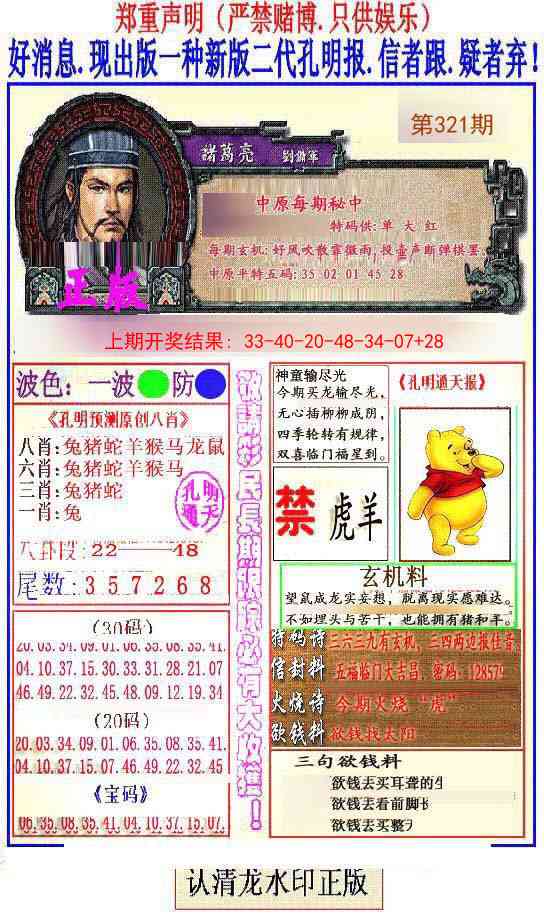 郑重声明（严禁赌博.只供娱乐）
好消息.现出版一种新版二代孔明报.信者跟.疑者弃!
第321期
諸葛亮 劉備軍
中原每期秘中
特码供:单 大 红
每期玄机:好风吹散霏微雨,投壶声断弹棋罢.
中原平特五码:35 02 01 45 28
正版
上期开奖结果: 33-40-20-48-34-07+28
波色: 一波 防
《孔明预测原创八肖》
八肖:兔猪蛇羊猴马龙鼠
六肖:兔猪蛇羊猴马
三肖:兔猪蛇
一肖:兔
孔明通天
22——48
尾数:357268
敬請彩民長期跟踪必有大收獲!
神童输尽光
今期买龙输尽光,
无心插柳柳成阴,
四季轮转有规律,
双喜临门福星到.
《孔明通天报》
禁 虎羊
玄机料
望鼠成龙实妄想，脱离现实愿难达。
不如埋头与苦干，也能拥有猪和羊。
特码诗 三六三九有玄机,三四两边报佳音
信封料 五福临门大吉昌，密码：12857
火烧诗 今期火烧“虎”
欲钱料 欲钱找太阳
(30码)
20.03.34.09.01.06.35.08.35.41
04.10.37.15.30.33.31.28.21.07
46.49.22.32.45.48.09.12.19.34
(20码)
20.03.34.09.01.06.35.08.35.41
04.10.37.15.07.46.49.22.32.45
《宝码》
06.35.08.35.41.04.10.37.15.07.
三句欲钱料
欲钱去买耳聋的
欲钱去看前脚
欲钱去买整
认清龙水印正版